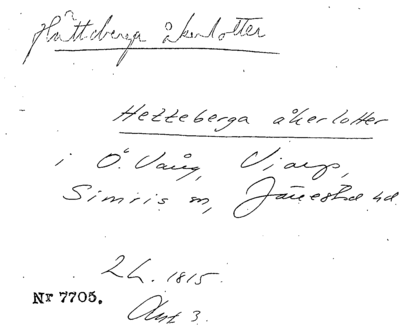 Håtteberga åkerlotter
Hetteberga åkerlotter
i Ö. Vång, Viarp,
Simris sn, Järrestad hd
2 L. 1815.
Nr 7705.
Akt 3.